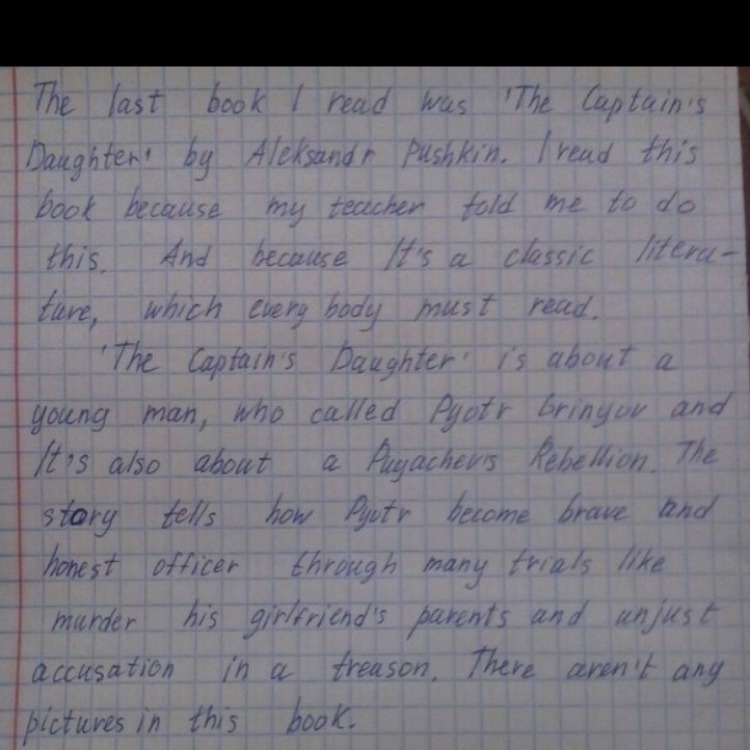 The last book I read was 'The Captain's
Daughter' by Aleksandr Pushkin. I read this
book because my teacher told me to do
this. And because It's a classic litera-
ture, which every body must read.
'The Captain's Daughter' is about a
young man, who called Pyotr Grinyov and
It's also about a Pugachev's Rebellion. The
story tells how Pyotr become brave and
honest officer through many trials like
murder his girlfriend's parents and unjust
accusation in a treason. There aren't any
pictures in this book.